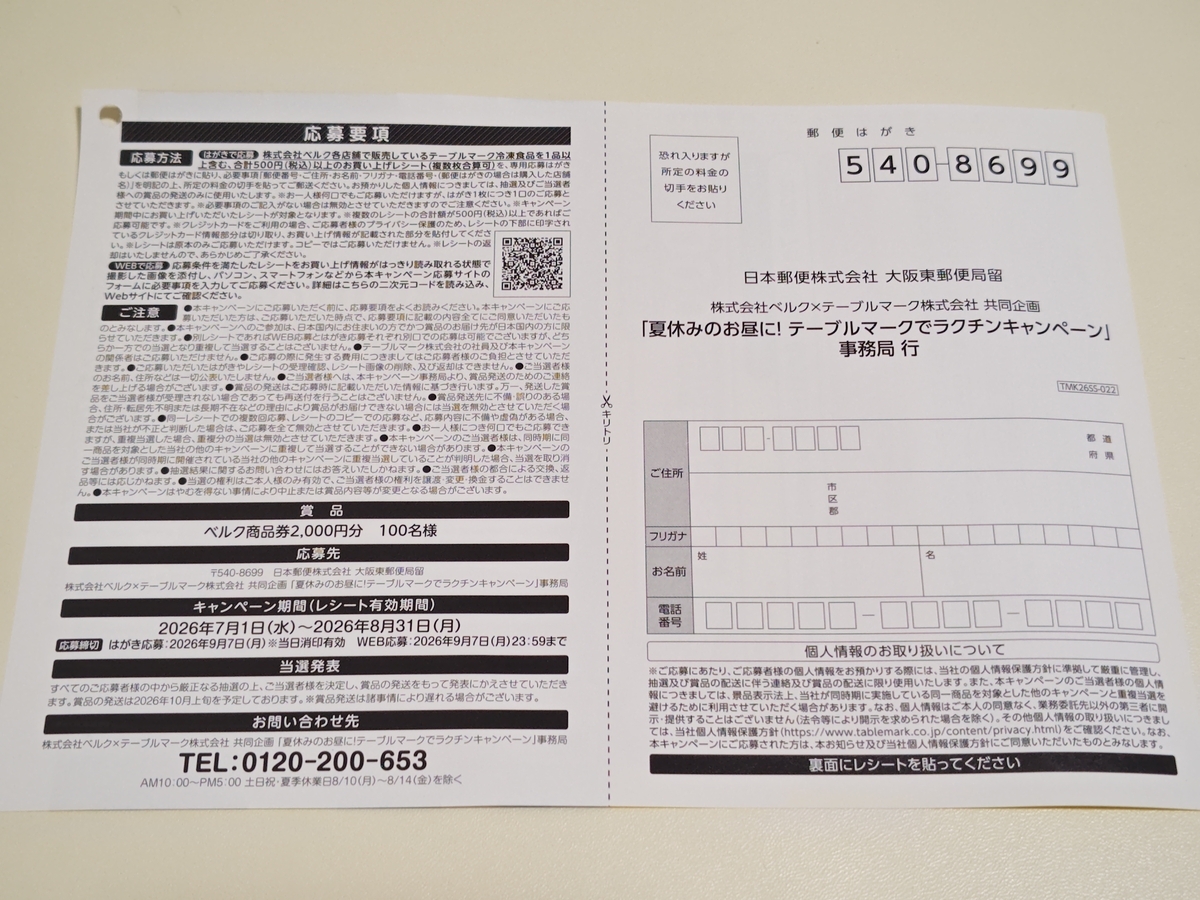 応募要項
応募方法
はがきで応募 株式会社ベルク各店舗で販売しているテーブルマーク冷凍食品を1品以
上含む、合計500円(税込)以上のお買い上げレシート(複数枚合算可)を、専用応募はがき
もしくは郵便はがきに貼り、必要事項「郵便番号・ご住所・お名前・フリガナ・電話番号・(郵便はがきの場合は購入した店舗
名)」を明記の上、所定の料金の切手を貼ってご郵送ください。お預かりした個人情報につきましては、抽選及びご当選者
様への賞品の発送のみに使用いたします。※お一人様何口でもご応募いただけますが、はがき1枚につき1口のご応募と
させていただきます。※必要事項のご記入がない場合は無効とさせていただきますのでご注意ください。※キャンペーン
期間中にお買い上げいただいたレシートが対象となります。※複数のレシートの合計額が500円(税込)以上であればご
応募可能です。※クレジットカードをご利用の場合、ご応募者様のプライバシー保護のため、レシートの下部に印字され
ているクレジットカード情報部分は切り取り、お買い上げ情報が記載された部分を貼付してくださ
い。※レシートは原本のみご応募いただけます。コピーではご応募いただけません。※レシートの返
却はいたしませんので、あらかじめご了承ください。
WEBで応募 応募条件を満たしたレシートをお買い上げ情報がはっきり読み取れる状態で
撮影した画像を添付し、パソコン、スマートフォンなどから本キャンペーン応募サイトの
フォームに必要事項を入力してご応募ください。詳細はこちらの二次元コードを読み込み、
Webサイトにてご確認ください。
ご注意
●本キャンペーンにご応募いただく前に、応募要項をよくお読みください。本キャンペーンにご応
募いただいた方は、ご応募いただいた時点で、応募要項に記載の内容全てにご同意いただいたも
のとみなします。●本キャンペーンへのご参加は、日本国内にお住まいの方でかつ賞品のお届け先が日本国内の方に限
らせていただきます。●別レシートであればWEB応募とはがき応募それぞれ別口での応募は可能でございますが、どち
らか一方での当選となり重複して当選することはございません。●テーブルマーク株式会社の社員及び本キャンペーン
の関係者はご応募いただけません。●ご応募の際に発生する費用につきましてはご応募者様のご負担とさせていただき
ます。●ご応募いただいたはがきやレシートの受理確認、レシート画像の削除、及び返却はできません。●ご当選者様
のお名前、住所などは一切公表いたしません。●ご当選者様へは、本キャンペーン事務局より、賞品発送のためのご連絡
を差し上げる場合がございます。●賞品の発送はご応募時に記載いただいた情報に基づき行います。万一、発送した賞
品をご当選者様が受理されない場合であっても再送付を行うことはございません。●賞品発送先に不備・誤りのある場
合、住所・転居先不明または長期不在などの理由により賞品がお届けできない場合には当選を無効とさせていただく場
合がございます。●同一レシートでの複数回応募、レシートのコピーでの応募など、応募内容に不備や虚偽がある場合、
または当社が不正と判断した場合は、ご応募を全て無効とさせていただきます。●お一人様につき何口でもご応募でき
ますが、重複当選した場合、重複分の当選は無効とさせていただきます。●本キャンペーンのご当選者様は、同時期に同
一商品を対象とした当社の他のキャンペーンに重複して当選することができない場合があります。●本キャンペーンの
ご当選者様が同時期に開催されている当社の他のキャンペーンに重複当選していることが判明した場合、当選を取り消
す場合があります。●抽選結果に関するお問い合わせにはお答えいたしかねます。●ご当選者様の都合による交換、返
品等には応じかねます。●当選の権利はご本人様のみ有効で、ご当選者様の権利を譲渡・変更・換金することはできませ
ん。●本キャンペーンはやむを得ない事情により中止または賞品内容等が変更となる場合がございます。
賞品
ベルク商品券2,000円分 100名様
応募先
〒540-8699 日本郵便株式会社 大阪東郵便局留
株式会社ベルク×テーブルマーク株式会社 共同企画 「夏休みのお昼に!テーブルマークでラクチンキャンペーン」事務局
キャンペーン期間(レシート有効期間)
2026年7月1日(水)~2026年8月31日(月)
応募締切 はがき応募:2026年9月7日(月)※当日消印有効 WEB応募:2026年9月7日(月)23:59まで
当選発表
すべてのご応募者様の中から厳正なる抽選の上、ご当選者様を決定し、賞品の発送をもって発表にかえさせていただき
ます。賞品の発送は2026年10月上旬を予定しております。※賞品の発送は諸事情により遅れる場合がございます。
お問い合わせ先
株式会社ベルク×テーブルマーク株式会社 共同企画 「夏休みのお昼に!テーブルマークでラクチンキャンペーン」事務局
TEL:0120-200-653
AM10:00~PM5:00 土日祝・夏季休業日8/10(月)~8/14(金)を除く
キリトリ
恐れ入りますが
所定の料金の
切手をお貼り
ください
郵便はがき
540-8699
日本郵便株式会社 大阪東郵便局留
株式会社ベルク×テーブルマーク株式会社 共同企画
「夏休みのお昼に! テーブルマークでラクチンキャンペーン」
事務局 行
TMK26SS-022
ご住所
都道
府県
市
区
郡
フリガナ
お名前
姓
名
電話
番号
個人情報のお取り扱いについて
※ご応募にあたり、ご応募者様の個人情報をお預かりする際には、当社の個人情報保護方針に準拠して厳重に管理し、
抽選及び賞品の配送に伴う連絡及び賞品の配送に限り使用いたします。また、本キャンペーンのご当選者様の個人情
報につきましては、景品表示法上、当社が同時期に実施している同一商品を対象とした他のキャンペーンと重複当選を
避けるために利用させていただく場合があります。なお、個人情報はご本人の同意なく、業務委託先以外の第三者に開
示・提供することはございません(法令等により開示を求められた場合を除く)。その他個人情報の取り扱いにつきまし
ては、当社個人情報保護方針(https://www.tablemark.co.jp/content/privacy.html)をご確認ください。なお、
本キャンペーンにご応募された方は、本お知らせ及び当社個人情報保護方針にご同意いただいたものとみなします。
裏面にレシートを貼ってください